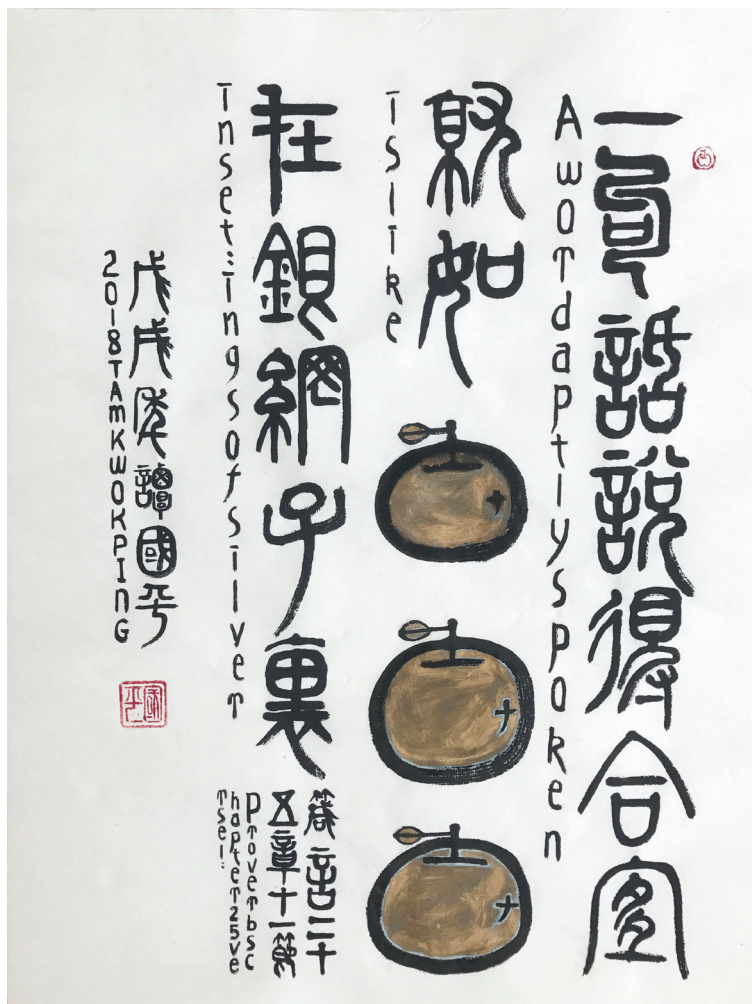 一句話說得合宜
A word aptly spoken
就如
is like
在銀網子裏
in settings of silver
箴言二十
五章十一節
Proverbsc
hapter25ve
rse11
戊戌年譚國平
2018 TAM KWOK PING
國平